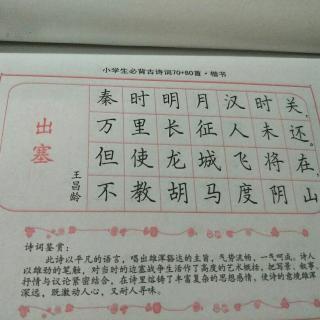 小学生必背古诗词70+80首·楷书
出塞
王昌龄
秦时明月汉时关，
万里长征人未还。
但使龙城飞将在，
不教胡马度阴山
诗词鉴赏：
此诗以平凡的语言，唱出雄浑豁达的主旨，气势流畅，一气呵成。诗人
以雄劲的笔触，对当时的边塞战争生活作了高度的艺术概括，把写景、叙事、
抒情与议论紧密结合，在诗里熔铸了丰富复杂的思想感情，使诗的意境雄浑
深远，既激动人心，又耐人寻味。